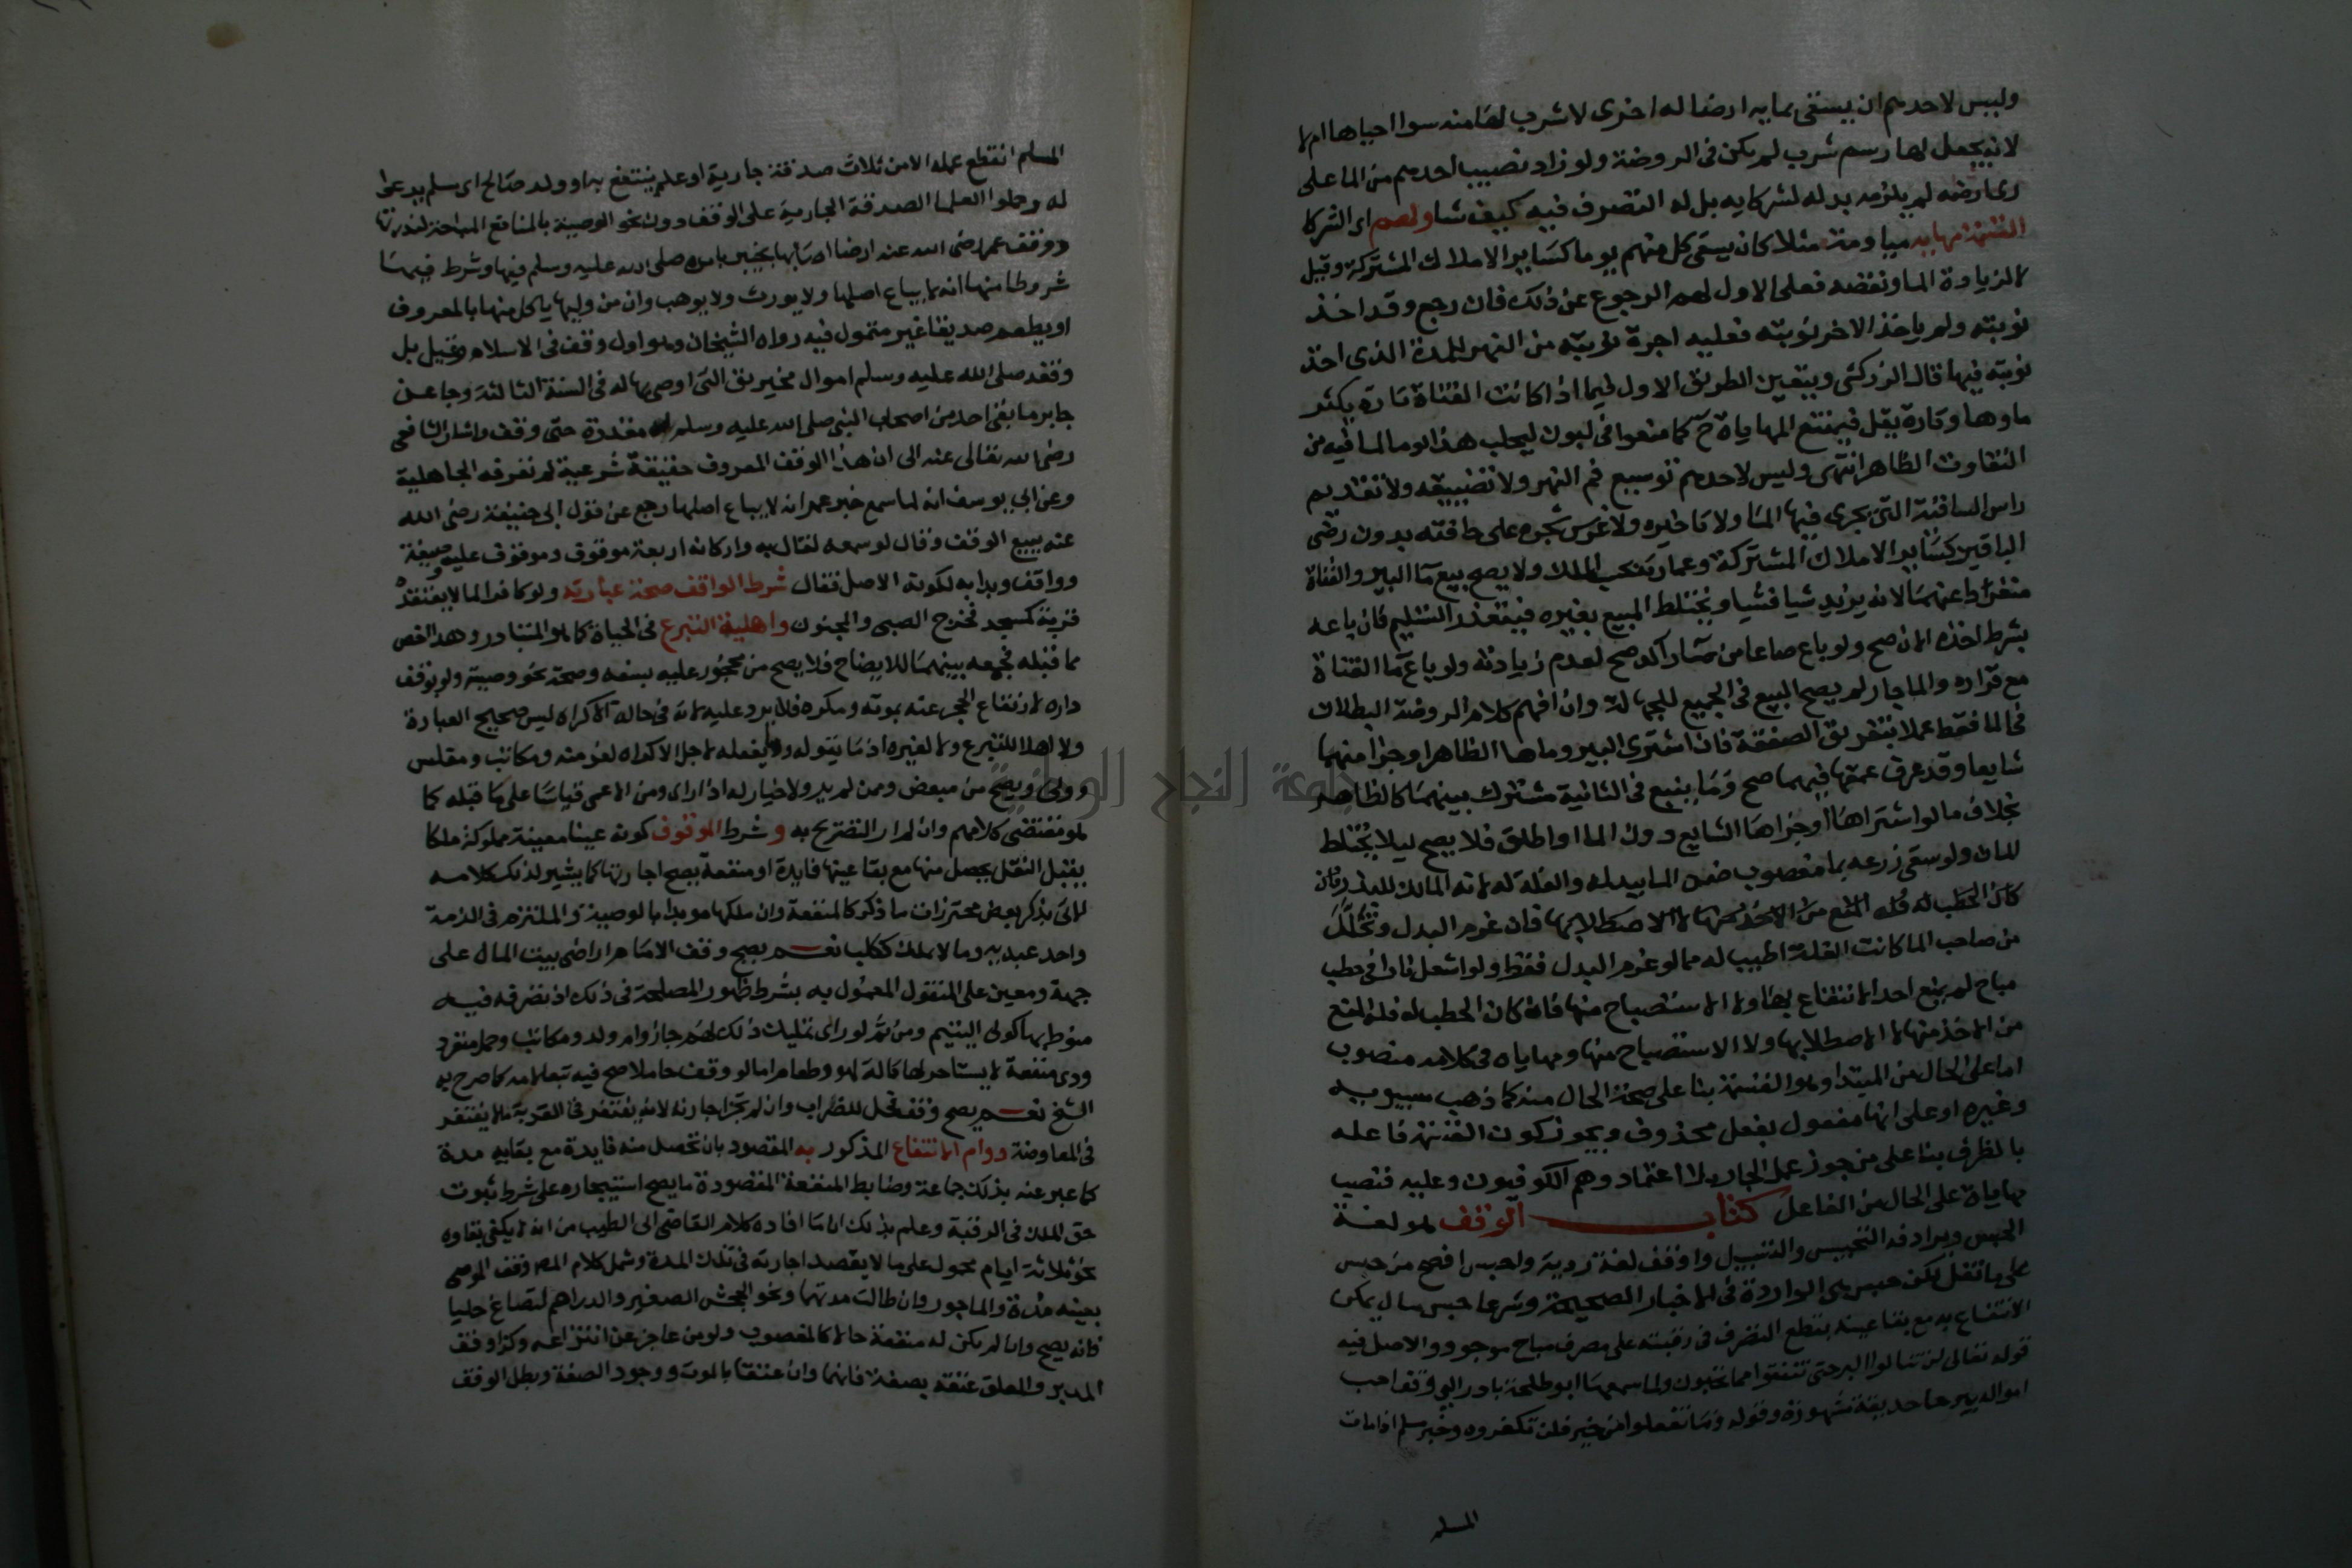 وليس لاحدهم ان يسقى بمايه ارضا له اخرى لا شرب لها منه سوا احياها ام لا
لانه يجعل لها رسم شرب لم يكن في الروضة ولو زاد نصيب احدهم من الما على
رى ارضه لم يلزمه بذله لشركايه بل له التصرف فيه كيف شا ولهم اى الشركا
القسمة مهاياه مياومة مثلا كان يسقى كل منهم يوما كساير الاملاك المشتركة وقيل
لا لزيادة الما ونقصه فعلى الاول لهم الرجوع عن ذلك فان رجع وقد اخذ
نوبته ولم ياخذ الاخر نوبته فعليه اجرة نوبته من النهر للمدة الذى اخذ
نوبته فيها قال الزركشى ويتعين الطريق الاول فيما اذا كانت القناة تارة يكثر
ماوها وتارة يقل فيمتنع المهاياة ح كما منعوا في لبون ليحلب هذا يوما لما فيه من
التفاوت الظاهر انتهى وليس لاحدهم توسيع فم النهر ولا تضييقه ولا تقديم
راس الساقية التى يجرى فيها الما ولا تاخيره ولا غرس شجره على حافته بدون رضى
الباقين كساير الاملاك المشتركة وعمارته بحسب الملك ولا يصح بيع ما البير والقناة
منفردا عنهما لانه يزيد شيا فشيا ويختلط المبيع بغيره فيتعذر التسليم فان باعه
بشرط اخذه الان صح ولو باع صاعا من ما راكد صح لعدم زيادته ولو باع ما القناة
مع قراره والما جار لم يصح البيع في الجميع للجهالة وان افهم كلام الروضة البطلان
في الما فقط عملا بتفريق الصفقة فان اشترى البير وماها الظاهر او جزا منهما
شايعا وقد عرف عمقها فيهما صح وما ينبع في الثانية مشترك بينهما كالظاهر
بخلاف ما لو اشتراها او جزاها الشايع دون الما او اطلق فلا يصح ليلا يختلط
للمان ولو سقى زرعه بما مغصوب ضمن الما ببدله والغلة له لانه المالك للبذر فان
كان الحطب له فله المنع من الاخذ منها لا الاصطلا بها فان غرم البدل وتحلل
من صاحب الما كانت الغلة اطيب له مما لو غرم البدل فقط ولو اشعل نارا في حطب
مباح لم يمنع احد الانتفاع بها ولا الاستصباح منها فان كان الحطب له فله المنع
من الاخذ منها لا الاصطلا بها ولا الاستصباح منها ومهاياه في كلامه منصوب
اما على الحال من المبتدا وهو القسمة بنا على صحة الحال منه كما ذهب سيبويه
وغيره او على انها مفعول بفعل محذوف ويجوز كون القسمة فاعله
بالظرف بنا على من جوز عمل الجار بلا اعتماد وهم الكوفيون وعليه فنصب
مهاياة على الحال من الفاعل كتاب الوقف هو لغة
الحبس ويرادفه التحبيس والتسبيل واوقف لغة ردية ولحبس افصح من حبس
على ما نقل لكن حبس هى الواردة في الاخبار الصحيحة وشرعا حبس مال يمكن
الانتفاع به مع بقا عينه بقطع التصرف في رقبته على مصرف مباح موجود والاصل فيه
قوله تعالى لن تنالوا البر حتى تنفقوا مما تحبون ولما سمعها ابو طلحة بادر الى وقف احب
امواله بيرحا حديقة مشهورة وقوله وما تفعلوا من خير فلن تكفروه وخبر مسلم اذا مات
المسلم
المسلم انقطع عمله الا من ثلاث صدقة جارية او علم ينتفع به او ولد صالح اى مسلم يدعوا
له وحملوا العلما الصدقة الجارية على الوقف دون نحو الوصية بالمنافع المباحة لندرتها
ووقف عمر رضى الله عنه ارضا اصابها بخيبر بامره صلى الله عليه وسلم فيها وشرط فيها
شروطا منها انه لا يباع اصلها ولا يورث ولا يوهب وان من وليها ياكل منها بالمعروف
او يطعم صديقا غير متمول فيه رواه الشيخان وهو اول وقف في الاسلام وقيل بل
وقفه صلى الله عليه وسلم اموال مخيريق التى اوصى بها له في السنة الثالثة وجا عن
جابر ما بقى احد من اصحاب النبى صلى الله عليه وسلم له مقدرة حتى وقف واشار الشافعى
رضى الله تعالى عنه الى ان هذا الوقف المعروف حقيقة شرعية لم تعرفه الجاهلية
وعن ابى يوسف انه لما سمع خبر عمر انه لا يباع اصلها رجع عن قول ابى حنيفة رضى الله
عنه ببيع الوقف وقال لو سمعه لقال به واركانه اربعة موقوف وموقوف عليه وصيغة
وواقف وبدا به لكونه الاصل فقال شرط الواقف صحة عبارته ولو كافرا لما لا يعتقده
قربة كمسجد فخرج الصبى والمجنون واهلية التبرع في الحياة كما هو المتبادر وهذا اخص
مما قبله فجمعه بينهما للايضاح فلا يصح من محجور عليه بسفه وصحة نحو وصيته ولو بوقف
داره لارتفاع الحجر عنه بموته ومكره فلا يرد عليه لانه في حالة الاكراه ليس صحيح العبارة
ولا اهلا للتبرع ولا لغيره اذ ما يقوله او يفعله لاجل الاكراه لغو منه ومكاتب ومفلس
وولى ويصح من مبعض وممن لم ير ولا خيار له اذا راى ومن الاعمى قياسا على ما قبله كما
هو مقتضى كلامهم وان لم ار التصريح به وشرط الموقوف كونه عينا معينة مملوكة ملكا
يقبل النقل يحصل منها مع بقا عينها فايدة او منفعة يصح اجارتها كما يشير لذلك كلامه
الاتى بذكر بعض محترزات ما ذكر كالمنفعة وان ملكها موبدا بالوصية والملتزم في الذمة
واحد عبديه وما لا يملك ككلب نعم يصح وقف الامام اراضى بيت المال على
جهة ومعين على المنقول المعمول به بشرط ظهور المصلحة في ذلك اذ تصرفه فيه
منوط بها كولى اليتيم ومن ثم لو راى تمليك ذلك لهم جاز وام ولد ومكاتب وحمل منفرد
وذى منفعة لا يستاجر لها كالة لهو وطعام اما لو وقف حاملا صح فيه تبعا لامه كما صرح به
الشيخ نعم يصح وقف فحل للضراب وان لم تجز اجارته لانه يغتفر في القربة ما لا يغتفر
في المعاوضة دوام الانتفاع المذكور به المقصود بان تحصل منه فايدة مع بقايه مدة
كما عبر عنه بذلك جماعة وضابط المنفعة المقصودة ما يصح استيجاره على شرط ثبوت
حق الملك في الرقبة وعلم بذلك ان ما افاده كلام القاضى ابى الطيب من انه لا يكفى بقاوه
نحو ثلاثة ايام محمول على ما لا يقصد اجارته في تلك المدة وشمل كلام المص وقف الموصى
بعينه مدة والماجور وان طالت مدتهما ونحو الجحش الصغير والدراهم لتصاغ حليا
فانه يصح وان لم يكن له منفعة حالا كالمغصوب ولو من عاجز عن انتزاعه وكذا وقف
المدبر والمعلق عتقه بصفة فانهما وان عتقا بالموت ووجود الصفة وبطل الوقف